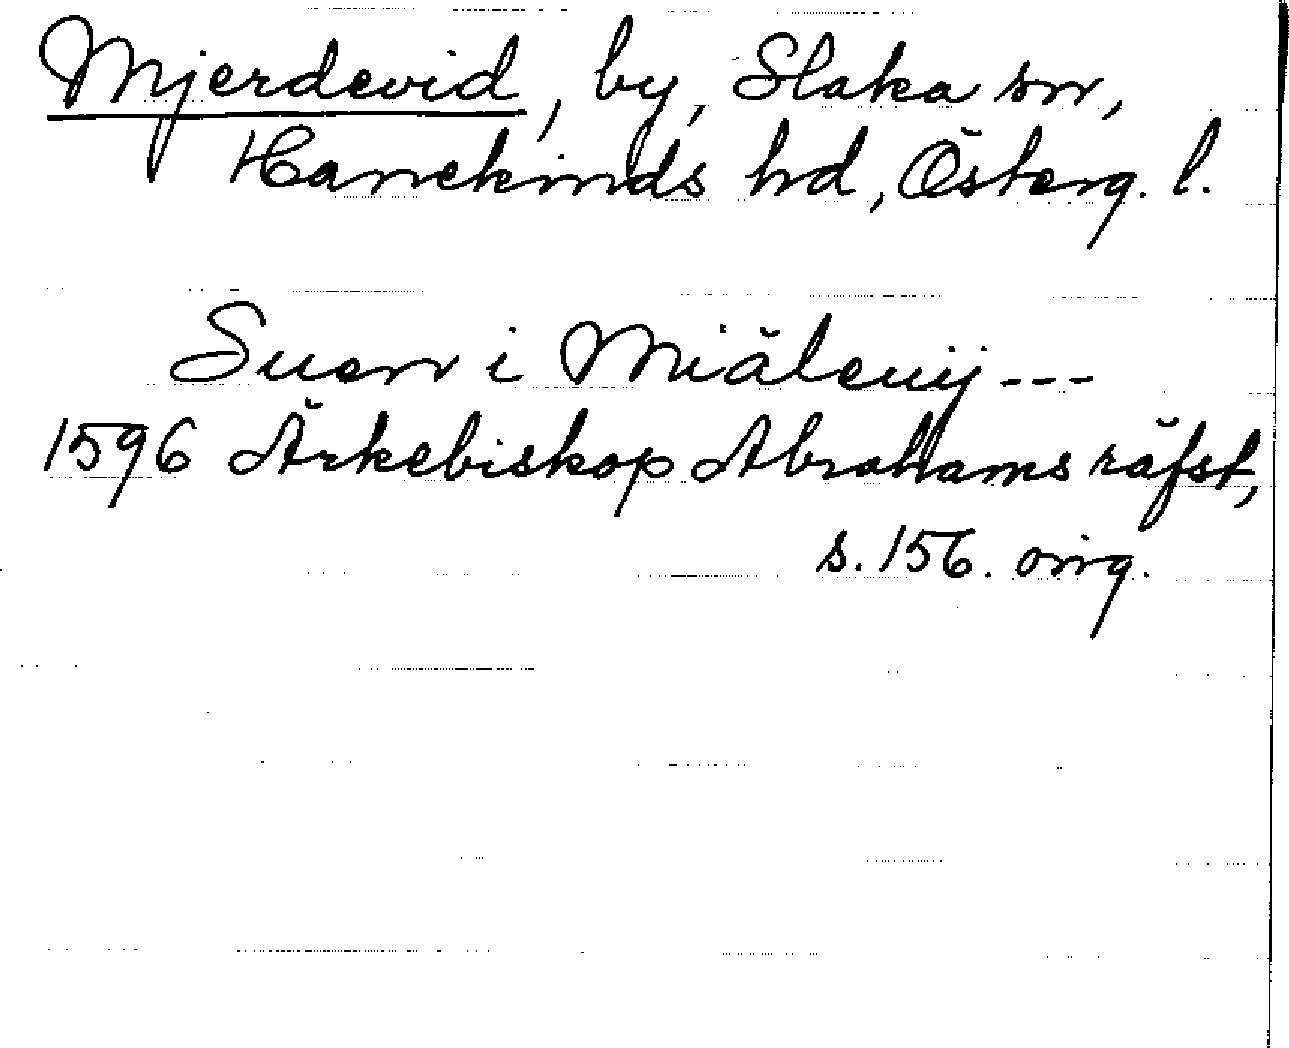 Mjerdevid, by, Slaka sn,
Hanekinds hd, Österg. l.
Suen i Miäleuij ---
1596 Ärkebiskop Abrahams räfst,
s. 156. orig.